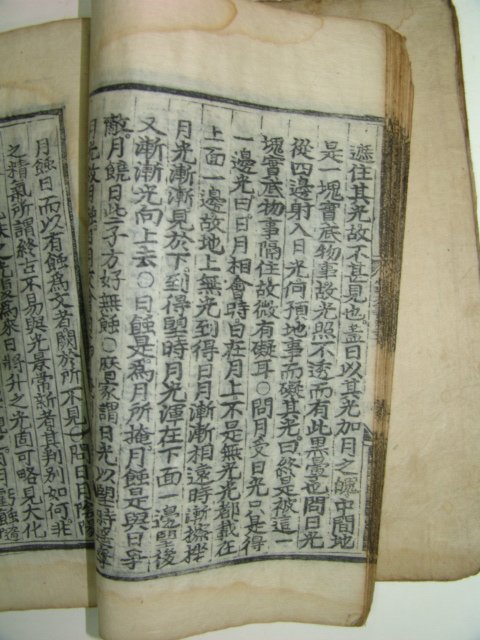 遮住其光故不甚見也蓋日以其光加月之魄中間地
是一塊實底物事故光照不透而有此黑暈也問日光
從四邊射入月光何預地事而礙其光曰終是被這一
塊實底物事隔住故微有礙耳○問月受日光只是得
一邊光曰日月相會時日在月上不是無光光都載在
上面一邊故地上無光到得日月漸漸相遠時漸擦挫
月光漸漸見於下到得望時月光渾在下面一邊望後
又漸漸光向上去○日蝕是爲月所掩月蝕是與日爭
敵月饒日些子方好無蝕○曆家謂日光以望時遙奪
月光故月蝕
月蝕日而以有蝕爲文者闕於所不見○問日月陰陽
之精氣所謂終古不易與光景常新者其判別如何非
爲來日將升之光固可略見大化